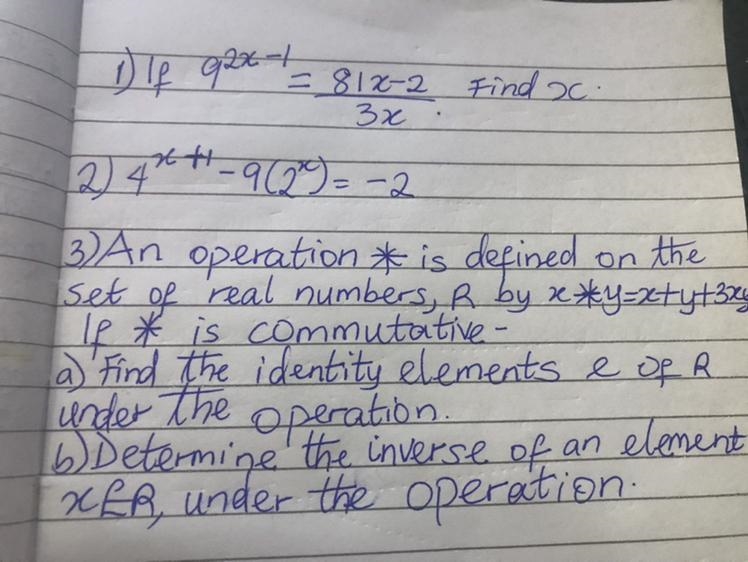 1) If 9^{2x-1} = \frac{81x-2}{3x}. Find x.
2) 4^{x+1} - 9(2^x) = -2
3) An operation * is defined on the
set of real numbers, R by x*y=x+y+3xy
If * is commutative -
a) Find the identity elements e of R
under the operation.
b) Determine the inverse of an element
x£R, under the operation.